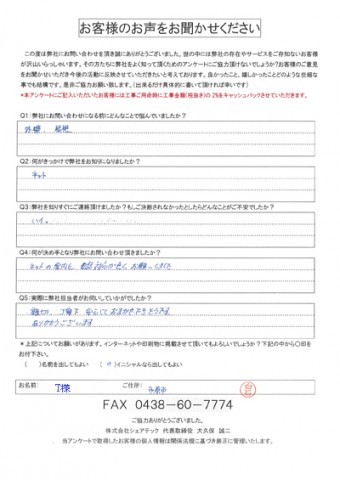 お客様のお声をお聞かせください
この度は弊社にお問い合わせを頂き誠にありがとうございました。世の中には弊社の存在やサービスをご存知ないお客様
が沢山いらっしゃいます。その方たちに弊社をよく知って頂くためのアンケートにご協力頂けないでしょうか?お客様のご意見
をお聞かせいただき今後の活動に反映させていただきたいと考えております。良かったこと、嬉しかったことどのような些細な
事でも結構です。是非ご協力お願い致します。(出来るだけ具体的に書いて頂ければ幸いです)
*本アンケートにご記入いただいたお客様には工事ご用命時に工事金額(税抜き)の2%をキャッシュバックさせていただきます。
Q1:弊社にお問い合わせになる前にどんなことで悩んでいましたか?
外壁、屋根
Q2:何がきっかけで弊社をお知りになりましたか?
ネット
Q3:弊社を知りすぐにご連絡頂けましたか?もしご決断されなかったとしたらどんなことがご不安でしたか?
はい。
Q4:何が決め手となり弊社にお問い合わせ頂きましたか?
ネットの
お願いしました
Q5:実際に弊社担当者がお伺いしていかがでしたか?
親切、丁寧で
ありがとうございます
*上記についてお願いがあります。インターネットや印刷物に掲載させて頂いてもよろしいでしょうか?下記の中から〇印を
お付下さい。
( )名前を出してもよい (○)イニシャルなら出してもよい
お名前: T様 ご住所: 市原市
FAX 0438-60-7774
ご協力ありがとうございました。
株式会社シェアテック 代表取締役 大久保 誠二
当アンケートで取得したお客様の個人情報は関係法規に基づき厳正に管理いたします。